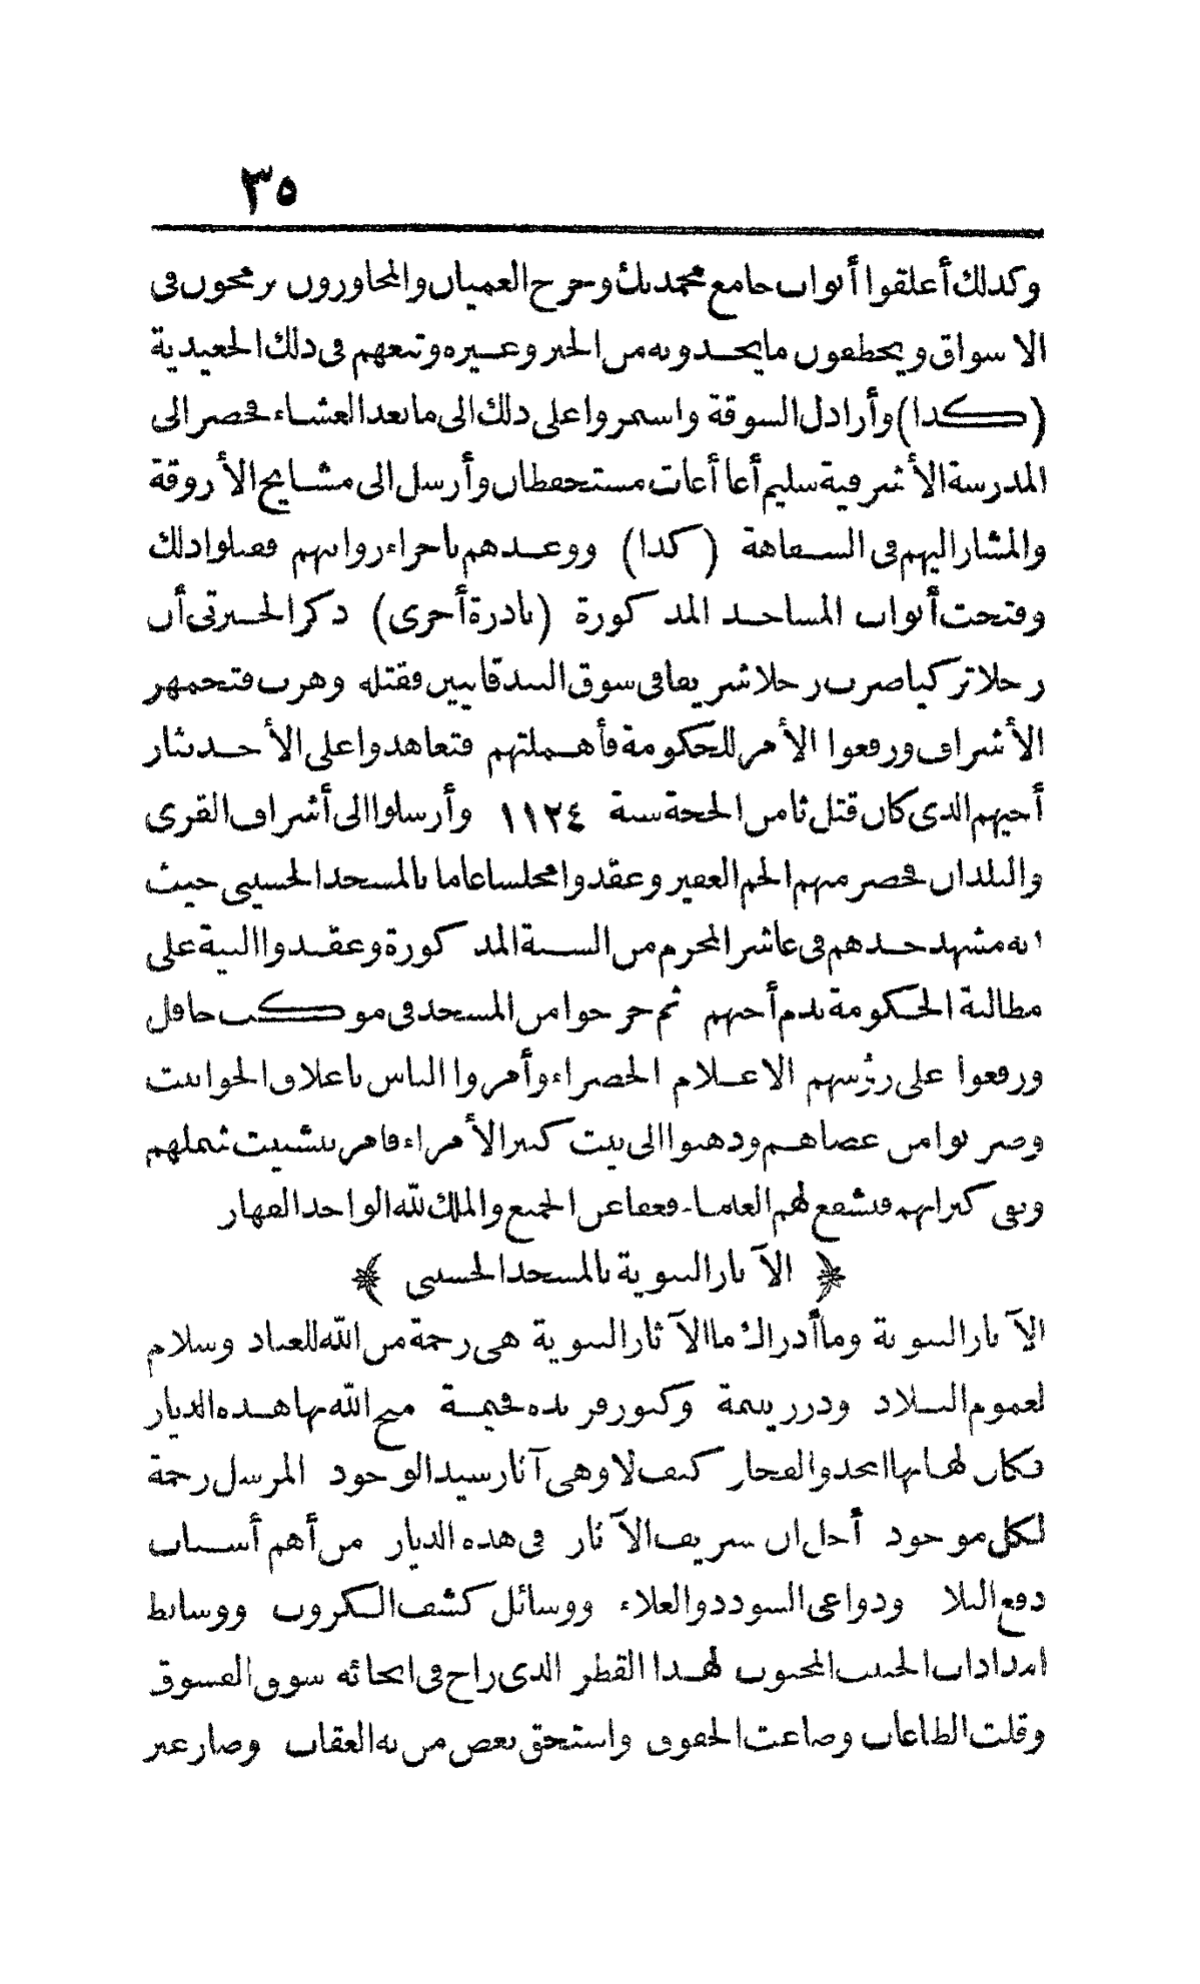 ٣٥
وكذلك أغلقوا أبواب جامع محمد بك وخرج العميان والمجاورون يرمحون في
الاسواق ويخطفون ما يجدونه من الخبز وغيره وتبعهم في ذلك الجعيدية
(كذا) وأرادل السوقة واستمروا على ذلك الى ما بعد العشاء فحضر الى
المدرسة الأشرفية سليم أغا أغات مستحفظان وأرسل الى مشايخ الأروقة
والمشار اليهم في السفاهة (كذا) ووعدهم باجراء رواتبهم فقبلوا ذلك
وفتحت أبواب المساجد المذكورة (نادرة أخرى) ذكر الجبرتي أن
رجلا تركيا ضرب رجلا شريفا في سوق البندقانيين فقتله وهرب فتجمهر
الأشراف ورفعوا الأمر للحكومة فأهملتهم فتعاهدوا على الأخذ بثار
أخيهم الذي كان قتل ثامن الحجة سنة ١١٢٤ وأرسلوا الى أشراف القرى
والبلدان فحضر منهم الجم الغفير وعقدوا مجلسا عاما بالمسجد الحسيني حيث
انه مشهد جدهم في عاشر المحرم من السنة المذكورة وعقدوا النية على
مطالبة الحكومة بدم أخيهم ثم خرجوا من المسجد في موكب حافل
ورفعوا على رؤسهم الاعلام الخضراء وأمروا الناس باغلاق الحوانيت
وضربوا من عصاهم وذهبوا الى بيت كبير الأمراء فامر بتشتيت شملهم
ونفي كبرائهم فتشفع لهم العلماء فعفا عن الجميع والملك لله الواحد القهار
﴿ الآثار النبوية بالمسجد الحسيني ﴾
الآثار النبوية وما أدراك ما الآثار النبوية هي رحمة من الله للعباد وسلام
لعموم البلاد ودرر يتيمة وكنوز فريدة فخيمة منح الله بها هذه الديار
فكان لها بها المجد والفخار كيف لا وهي آثار سيد الوجود المرسل رحمة
لكل موجود أجل ان شريف الآثار في هذه الديار من أهم أسباب
دفع البلا ودواعي السودد والعلاء ووسائل كشف الكروب ووسائط
امدادات الحبيب المحبوب لهذا القطر الذي راج في انحائه سوق الفسوق
وقلت الطاعات وضاعت الحقوق واستحق بعض من به العقاب وصار عبر